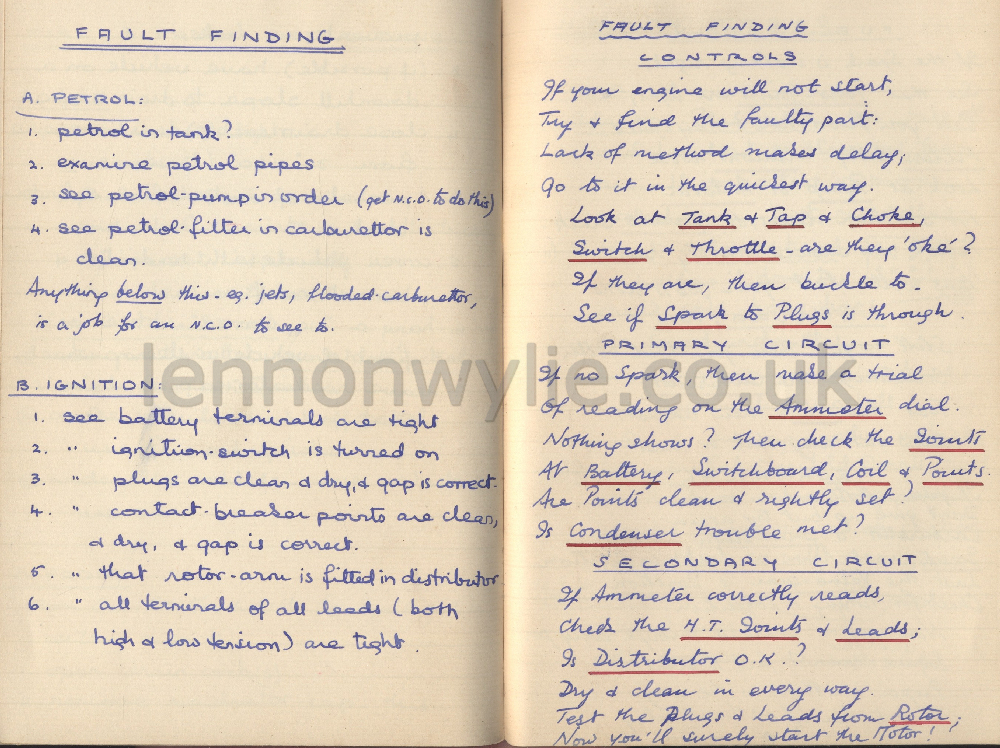 FAULT FINDING
A. PETROL:
1. petrol in tank?
2. examine petrol pipes
3. see petrol-pump in order (get N.C.O. to do this)
4. see petrol-filter in carburettor is
clean.
Anything below this - eg. jets, flooded-carburettor,
is a job for an N.C.O. to see to.
B. IGNITION:
1. see battery terminals are tight
2. " ignition-switch is turned on
3. " plugs are clean & dry, & gap is correct.
4. " contact-breaker points are clean,
& dry, & gap is correct.
5. " that rotor-arm is fitted in distributor
6. " all terminals of all leads (both
high & low tension) are tight.
FAULT FINDING
CONTROLS
If your engine will not start,
Try & find the faulty part:
Lack of method makes delay;
Go to it in the quickest way.
Look at Tank & Tap & Choke,
Switch & Throttle - are they 'oke'?
If they are, then buckle to -
See if Spark to Plugs is through.
PRIMARY CIRCUIT
If no Spark, then make a trial
Of reading on the Ammeter dial.
Nothing shows? Then check the Joints
At Battery, Switchboard, Coil & Points.
Are Points clean & rightly set?
Is Condenser trouble met?
SECONDARY CIRCUIT
If Ammeter correctly reads,
Check the H.T. Joints & Leads;
Is Distributor O.K.?
Dry & clean in every way.
Test the Plugs & Leads from Rotor;
Now you'll surely start the Motor!
lennonwylie.co.uk